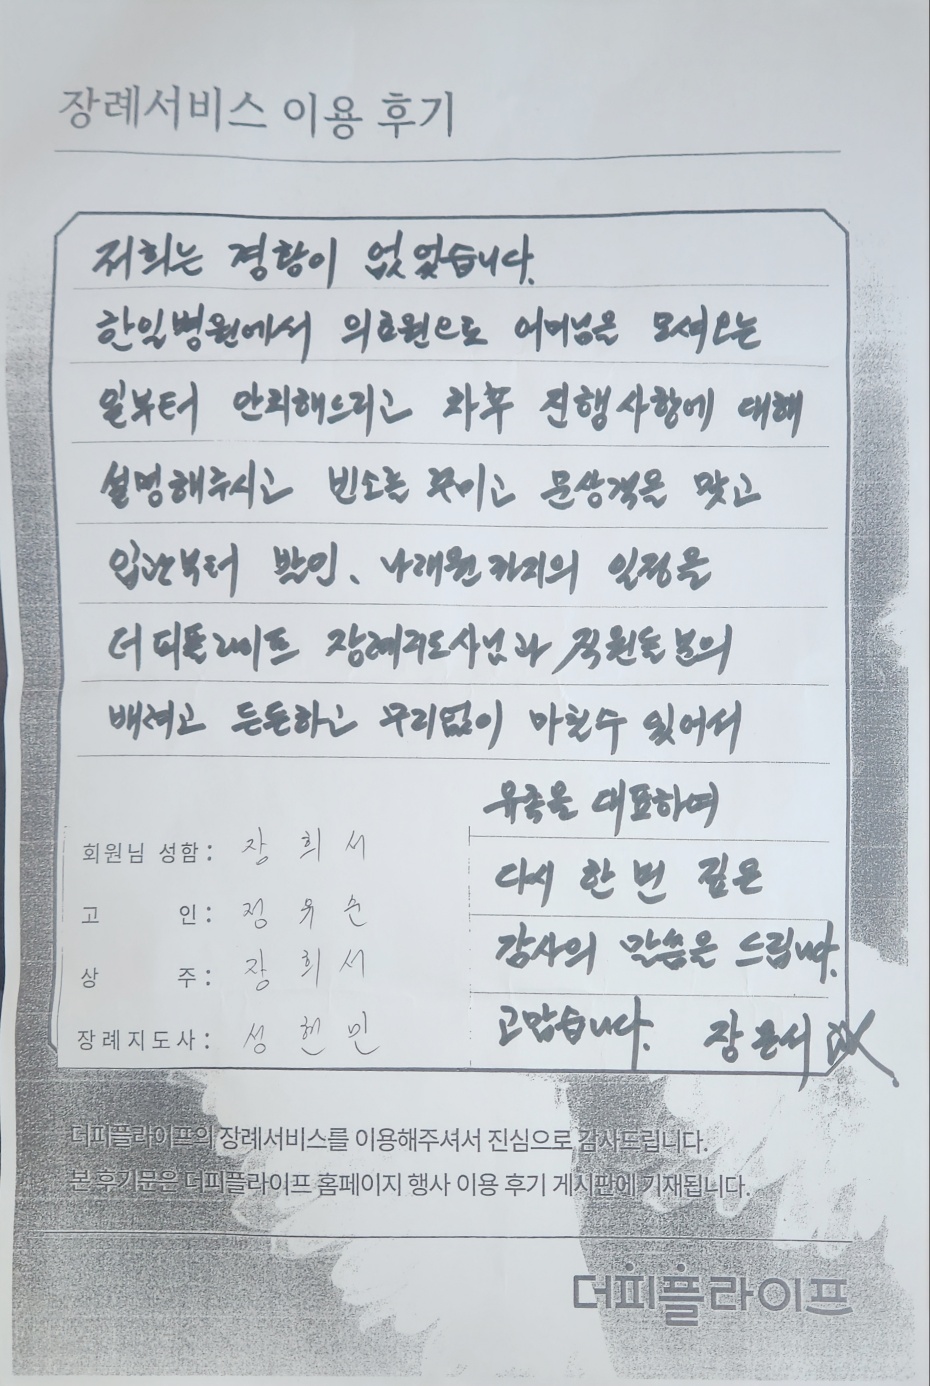 장례서비스 이용 후기
저희는 경황이 없었습니다.
한일병원에서 의료원으로 어머님을 모셔오는
일부터 안치해드리고 차후 진행사항에 대해
설명해주시고 빈소를 꾸미고 문상객을 맞고
입관부터 발인, 나래원까지의 일정을
더피플라이프 장례지도사님과 직원들분의
배려로 든든하고 무리없이 마칠수 있어서
유족을 대표하여
다시 한 번 깊은
감사의 말씀을 드립니다.
고맙습니다. 장은서
회원님 성함: 장희서
고 인: 정유순
상 주: 장희서
장례지도사: 성현민
더피플라이프의 장례서비스를 이용해주셔서 진심으로 감사드립니다.
본 후기문은 더피플라이프 홈페이지 행사 이용 후기 게시판에 기재됩니다.
더피플라이프